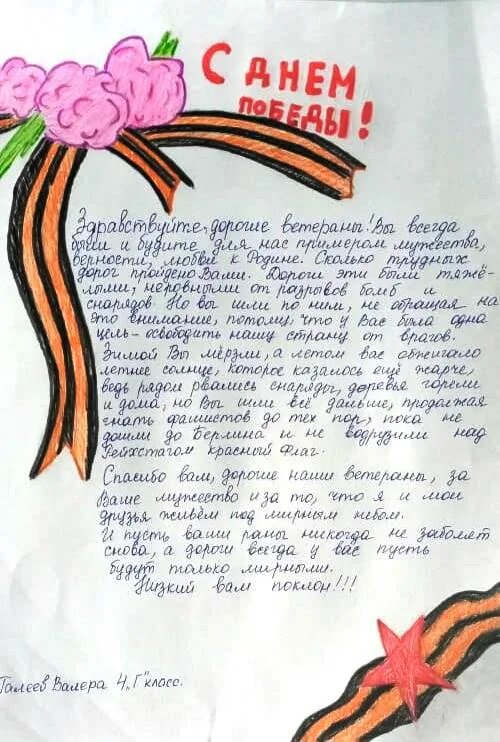 С ДНЕМ
ПОБЕДЫ!
Здравствуйте, дорогие ветераны! Вы всегда
были и будите для нас примером мужества,
верности, любви к Родине. Сколько трудных
дорог пройдено Вами. Дороги эти были тяжё-
лыми, неровными от разрывов бомб и
снарядов. Но вы шли по ним, не обращая на
это внимание, потому, что у Вас была одна
цель - освободить нашу страну от врагов.
Зимой Вы мёрзли, а летом вас обжигало
летнее солнце, которое казалось ещё жарче,
ведь рядом рвались снаряды, деревья горели
и дома, но Вы шли всё дальше, продолжая
гнать фашистов до тех пор, пока не
дошли до Берлина и не водрузили над
Рейхстагом красный флаг.
Спасибо вам, дорогие наши ветераны, за
Ваше мужество и за то, что я и мои
друзья живём под мирным небом.
И пусть ваши раны никогда не заболят
снова, а дороги всегда у вас пусть
будут только мирными.
Низкий вам поклон!!!
Галеев Валера 4 „Г" класс.